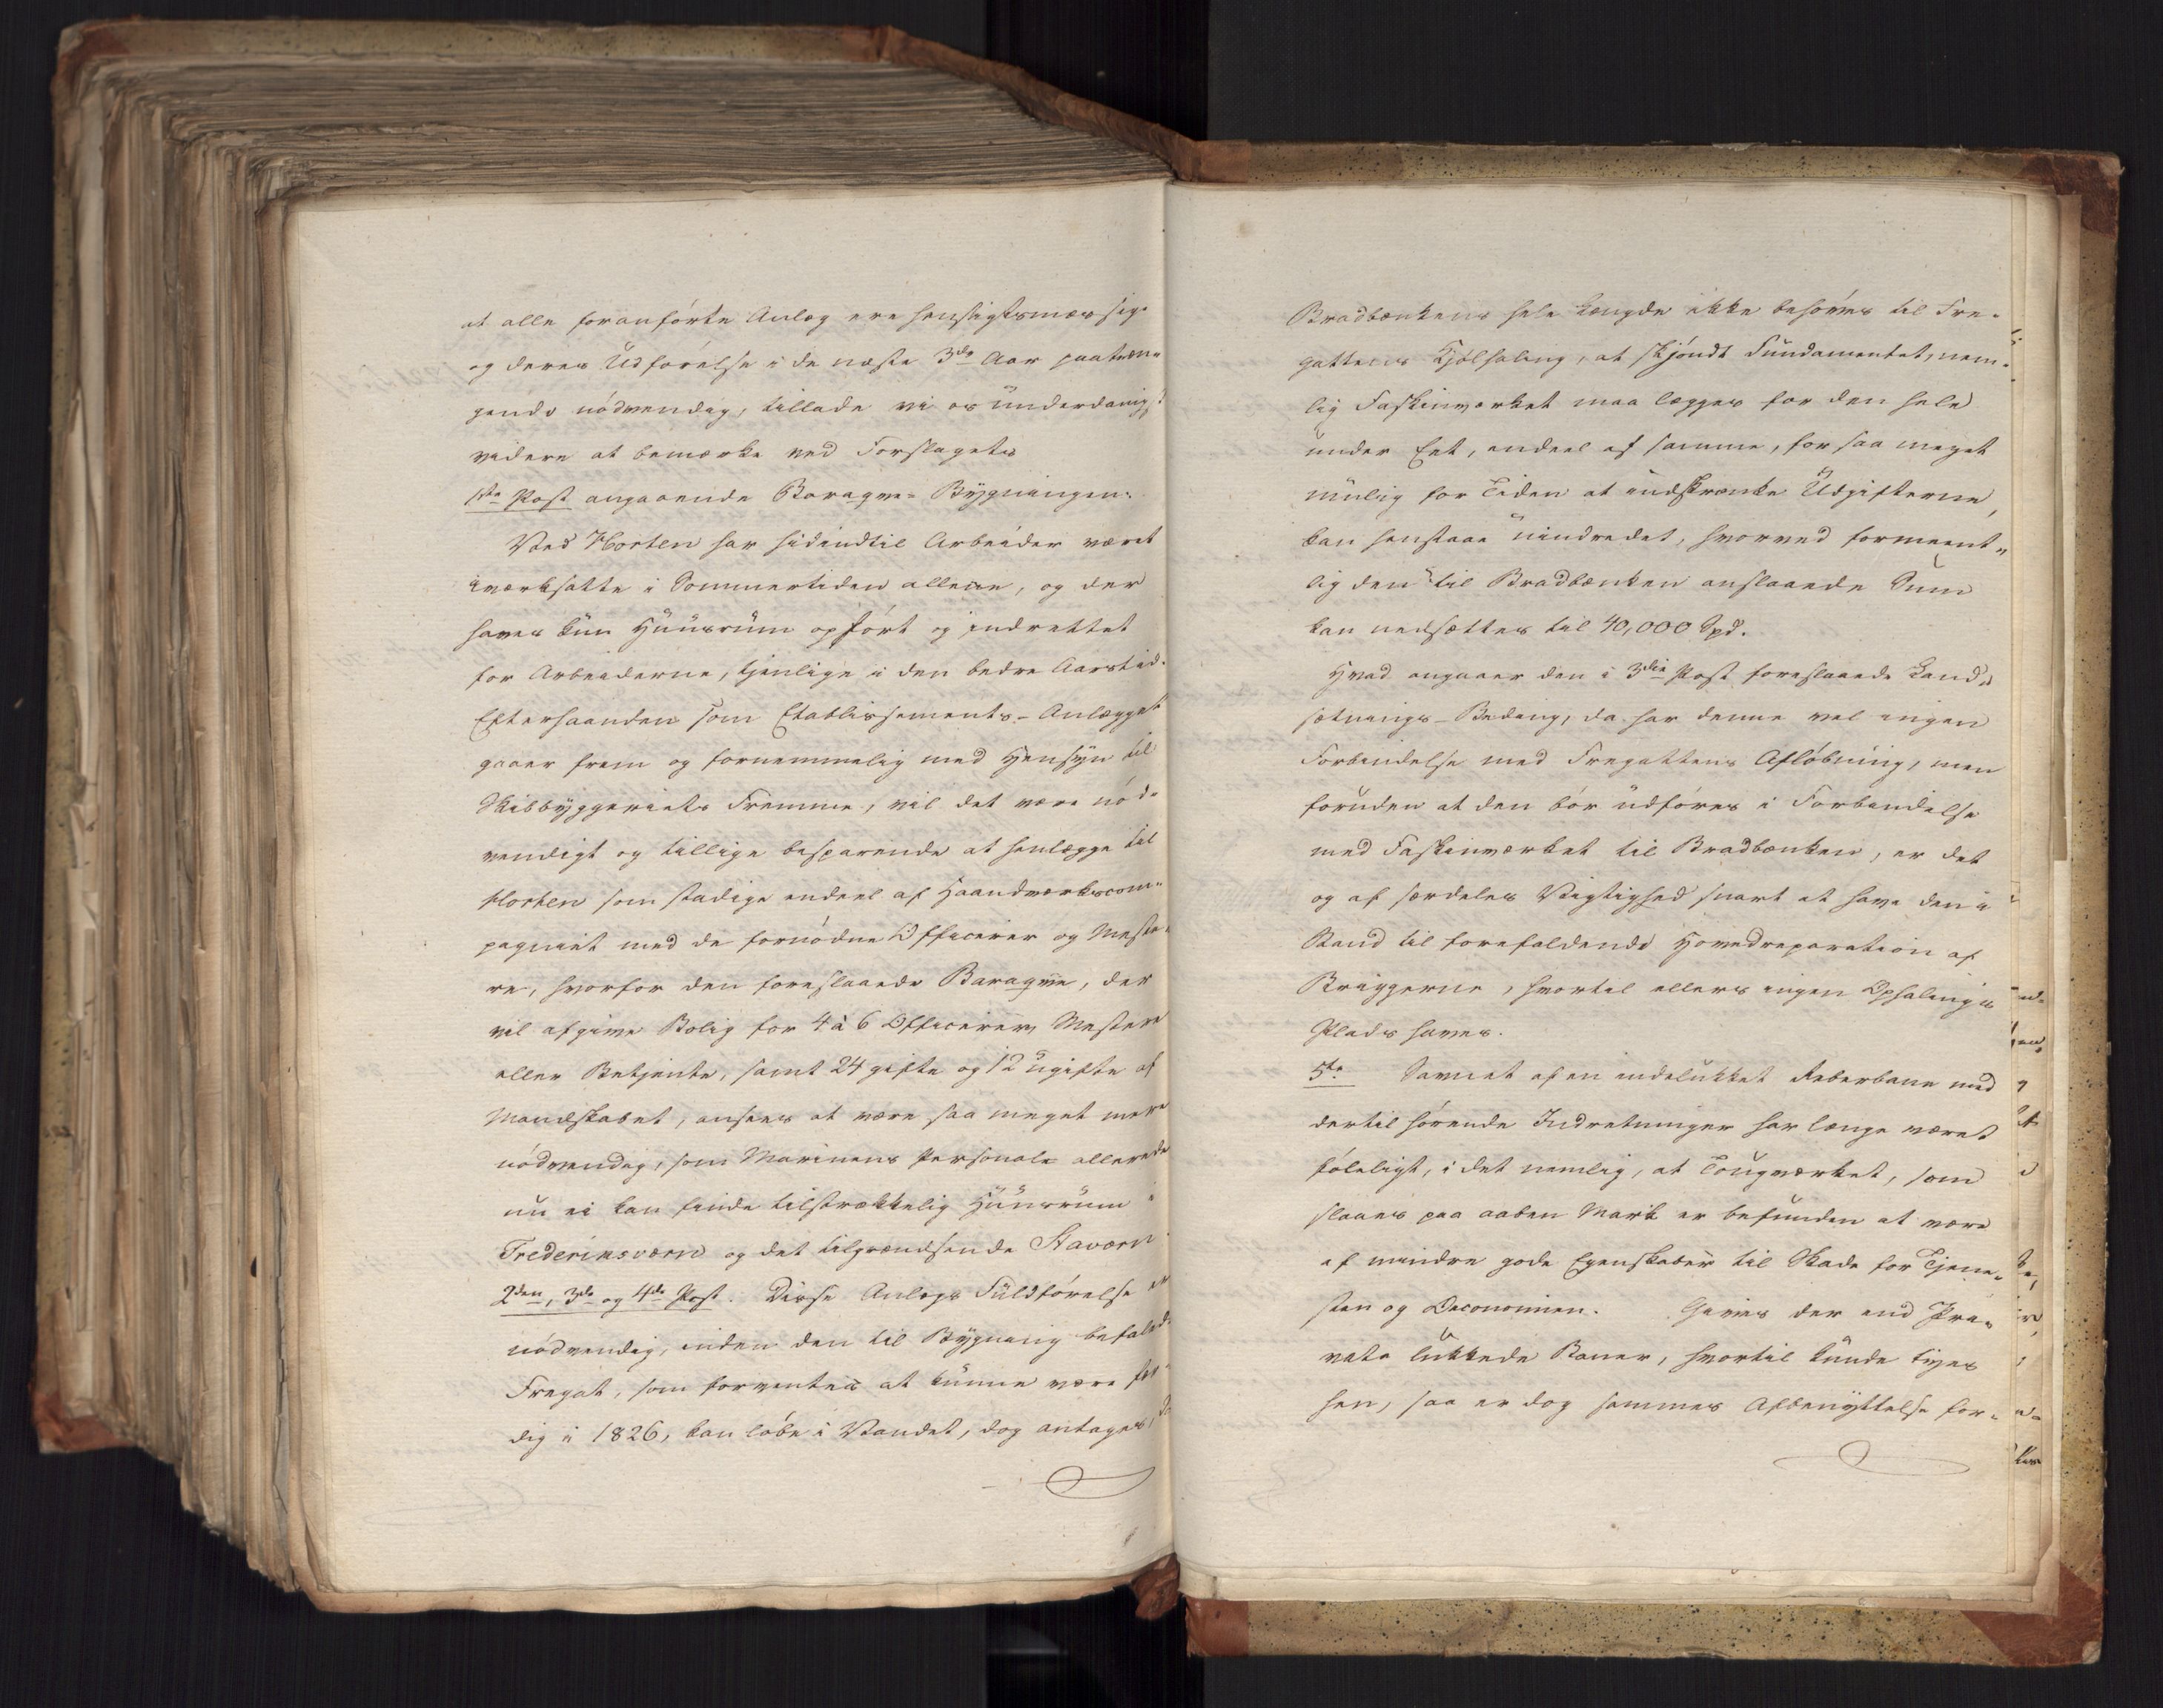 at alle foranførte Anlæg ere hensigtsmæssige
og deres Udførelse i de næste 3de Aar paatræn-
gende nødvendig, tillade vi os underdanigst
videre at bemærke ved Forslagets
1ste Post angaaende Baraque-Bygningen:
Ved Horten har hidindtil Arbeider været
iværksatte i Sommertiden allene, og der
haves kun Huusrum opført og indrettet
for Arbeiderne, tjenlige i den bedre Aarstid.
Efterhaanden som Etablissements-Anlægget
gaaer frem og fornemmelig med Hensyn til
Skibbyggeriets Fremme, vil det være nød-
vendigt og tillige besparende at henlægge til
Horten som stadige endeel af Haandværkscom-
pagniet med de fornødne Officerer og Meste-
re, hvorfor den foreslaaede Baraque, der
vil afgive Bolig for 4 à 6 Officerer, Mestere
eller Betjente, samt 24 gifte og 12 ugifte af
Mandskabet, ansees at være saa meget mere
nødvendig, som Marinens Personale allerede
nu ei kan finde tilstrækkelig Huusrum i
Frederiksværn og det tilgrændsende Staværn.
2den, 3die og 4de Post. Disse Anlægs Fuldførelse er
nødvendig, inden den til Bygning befalede
Fregat, som forventes at kunne være fær-
dig i 1826, kan løbe i Vandet, dog antages, da
Bradbænkens hele Længde ikke behøves til Fre-
gattens Kjølhaling, at skjøndt Fundamentet, nem-
lig Faskinværket maa lægges for den hele
under Eet, endeel af samme, for saa meget
mulig for Tiden at indskrænke Udgifterne,
kan henstaae uindredet, hvorved formeent-
lig den til Bradbænken anslaaede Sum
kan nedsættes til 40,000 Spd.
Hvad angaaer den i 3die Post foreslaaede Land-
sætnings-Bedding, da har denne vel ingen
Forbindelse med Fregattens Afløbning, men
foruden at den bør udføres i Forbindelse
med Faskinværket til Bradbænken, er det
og af særdeles Vigtighed snart at have den i
Stand til forefaldende Hovedreparation af
Briggerne, hvortil ellers ingen Ophalings
Plads haves.
5te Savnet af en indelukket Reberbane med
dertil hørende Indretninger har længe været
føleligt, i det nemlig, at Tougværket, som
slaaes paa aaben Mark er befunden at være
af mindre gode Egenskaber til Skade for Tjene-
sten og Oeconomien. Gaves der end Pri-
vate lukkede Baner, hvortil kunde tyes
hen, saa er dog sammes Afbenyttelse for-